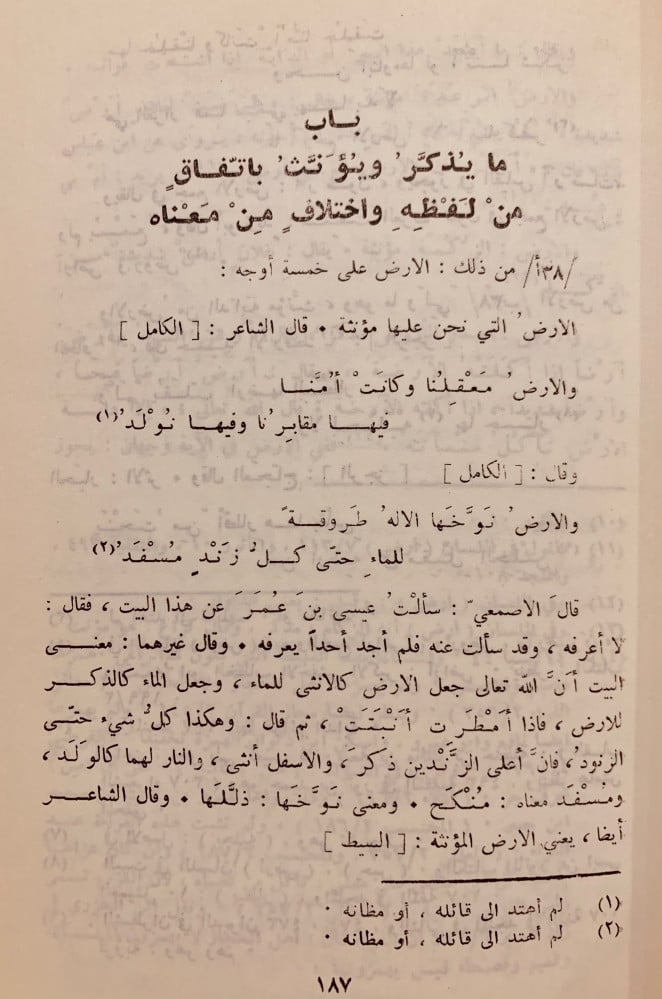 باب
ما يُذكَّرُ ويُؤَنَّثُ باتّفاقٍ
منْ لَفْظِهِ واختلافٍ مِنْ مَعْناه
/٣٨أ/ من ذلك : الارض على خمسة أوجه :
الارضُ التي نحن عليها مؤنثة ٠ قال الشاعر : [ الكامل ]
والارضُ مَعْقِلُنا وكانَتْ أُمَّنَا
فيها مقابرُنا وفيها نُوْلَدُ(١)
وقال : [ الكامل ]
والارضُ نَوَّخَها الالهُ طَروقةً
للماءِ حتّى كلُّ زَنْدٍ مُسْفَدُ(٢)
قالَ الاصمعيّ : سألتُ عيسى بنَ عُمَرَ عن هذا البيت ، فقال :
لا أعرفه ، وقد سألت عنه فلم أجد أحداً يعرفه ٠ وقال غيرهما : معنى
البيت أنَّ اللّه تعالى جعل الارض كالانثى للماء ، وجعل الماء كالذكر
للارض ، فاذا أمْطَرت أنْبَتَتْ ، ثم قال : وهكذا كلُّ شيء حتّى
الزنودُ ، فانَّ أعلى الزَّنْدين ذَكَرَ ، والاسفل أنثى ، والنار لهما كالوَلَد ،
ومُسْفَد معناه : مُنْكَح ٠ ومعنى نَوَّخَها : ذلَّلَها ٠ وقال الشاعر
أيضا ، يعني الارض المؤنثة : [ البسيط ]
(١) لم أهتد الى قائله ، أو مظانه ٠
(٢) لم أهتد الى قائله ، أو مظانه ٠
١٨٧